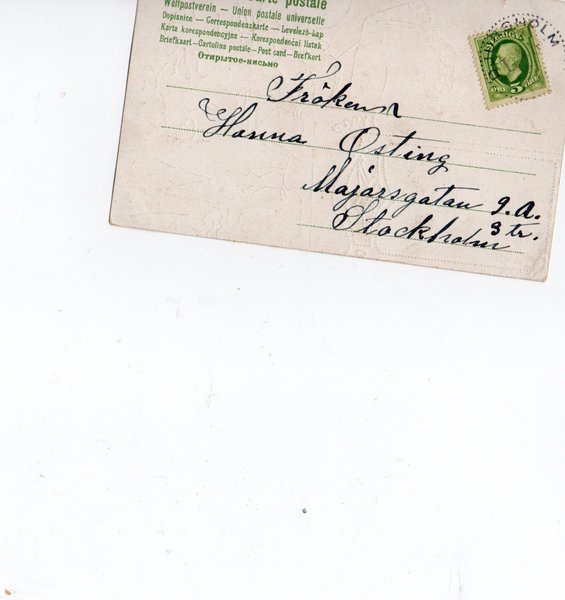 Carte postale
Weltpostverein — Union postale universelle
Dopisnice — Correspondenzkarte — Levelező-Lap
Karta korespondencyjna — Korespondenčni listek
Briefkaart—Cartolina postale—Post card—Brefkort
Открытое-письмо
Fröken
Hanna Osting
Majorsgatan 9.A.
3 tr.
Stockholm
SVERIGE
ÖRE 5 ÖRE
HOLM